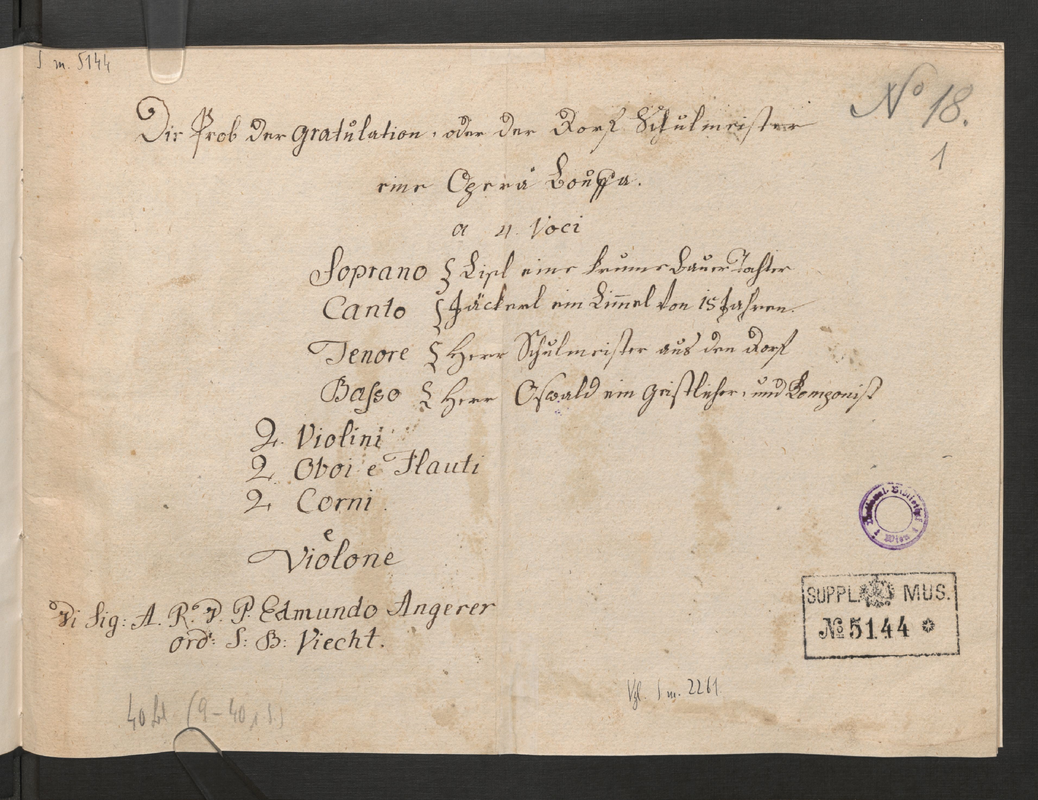 S m. 5144
No 18.
1
Die Prob der gratulation, oder der Dorf Schulmeister
eine Opera Bouffa.
a 4 Voci
Soprano { Lisel eine frume Bauer Tochter
Canto { Jäckerl ein Limmel von 15 Jahren.
Tenore { Herr Schulmeister aus den Dorf
Basso { Herr Oswald ein geistlicher, und Komponist
2 Violini
2 Oboi e Flauti
2 Corni
e
Violone
Di Sig: A. R. D. P. Edmundo Angerer
Ord: S: B: Viecht.
National-Bibliothek
Wien
SUPPL. MUS.
№ 5144
Vgl. S m. 2261
40 Bl